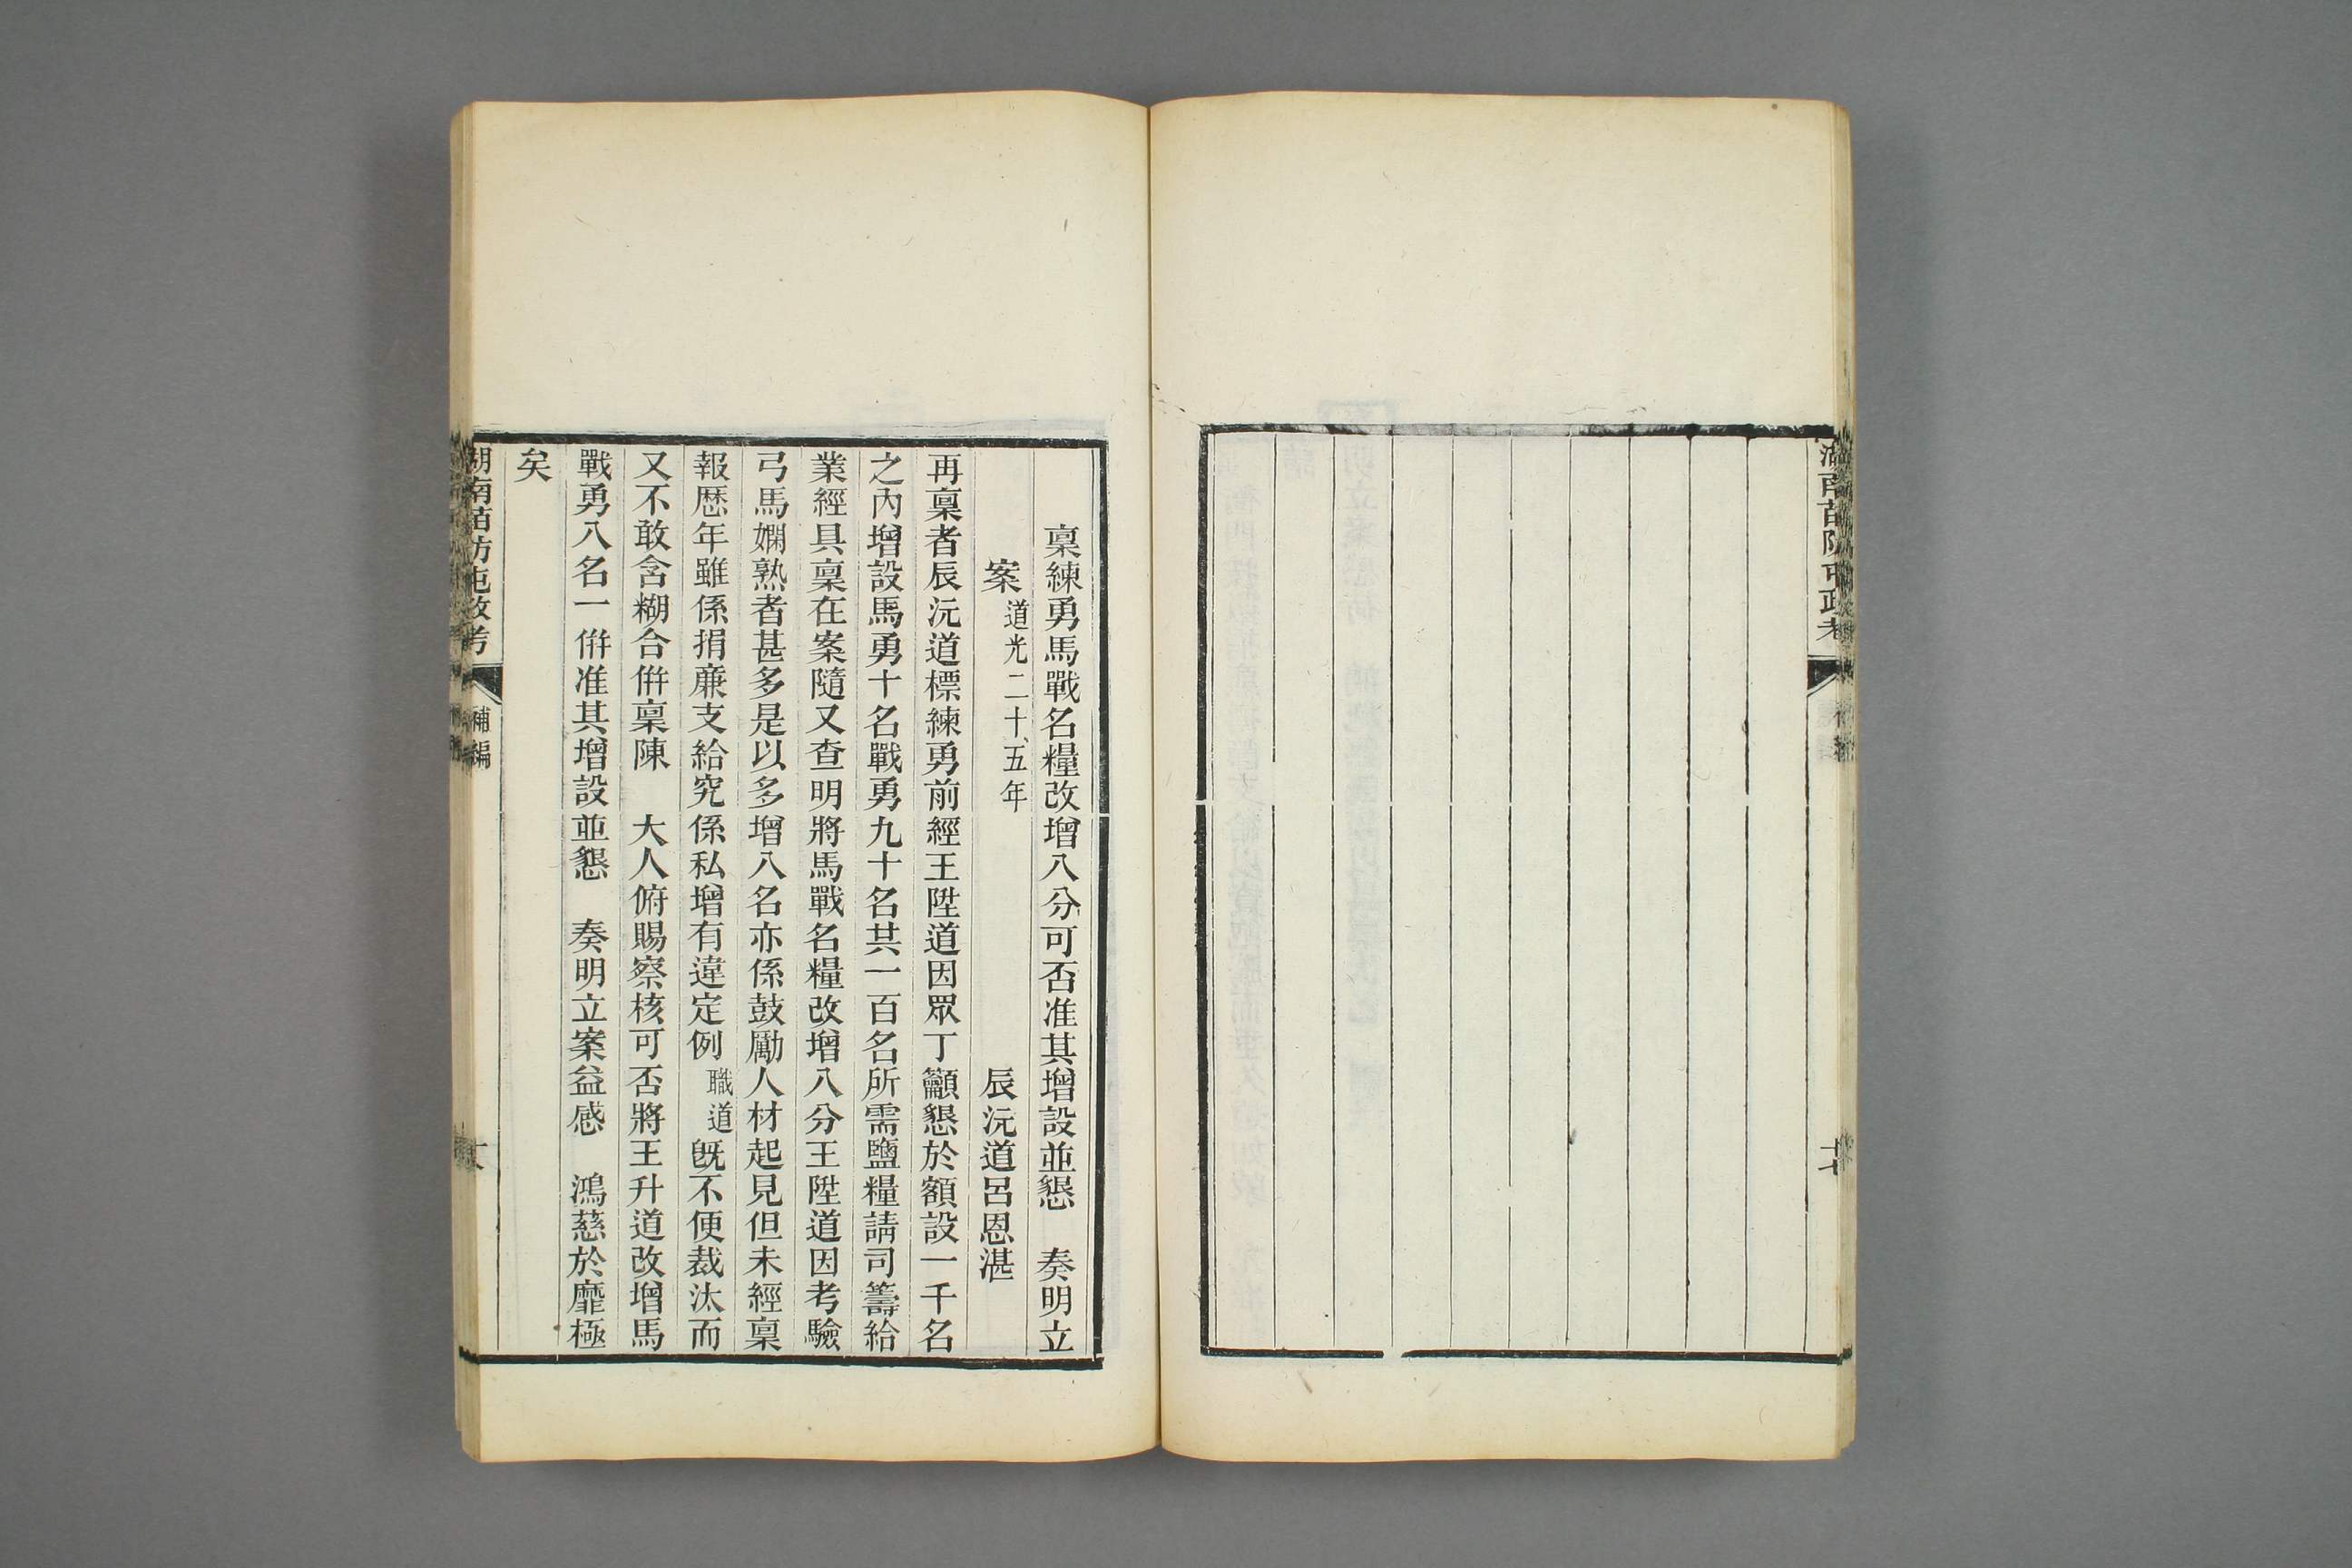 湖南苗防屯政考
稟練勇馬戰名糧改增八分可否准其增設並懇　奏明立
案道光二十五年　辰沅道呂恩湛
再稟者辰沅道標練勇前經王陞道因眾丁籲懇於額設一千名
之內增設馬勇十名戰勇九十名共一百名所需鹽糧請司籌給
業經具稟在案隨又查明將馬戰名糧改增八分王陞道因考驗
弓馬嫻熟者甚多是以多增八名亦係鼓勵人材起見但未經稟
報歷年雖係捐亷支給究係私增有違定例職道既不便裁汰而
又不敢含糊合併稟陳　大人俯賜察核可否將王升道改增馬
戰勇八名一併准其增設並懇　奏明立案益感　鴻慈於靡極
矣
湖南苗防屯政考　補編